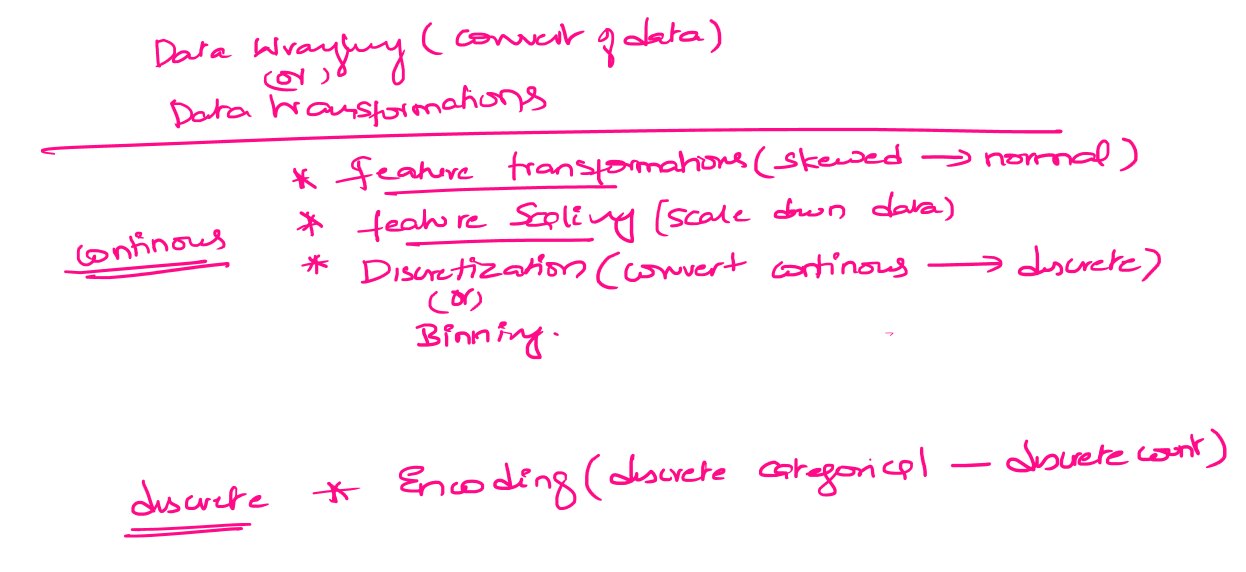 Data Wrangling (convert of data)
(or)
Data transformations
* feature transformations (skewed → normal)
* feature Scaling (scale down data)
continous
* Discretization (convert continous → discrete)
(or)
Binning.
discrete * Encoding (discrete categorical — discrete count)